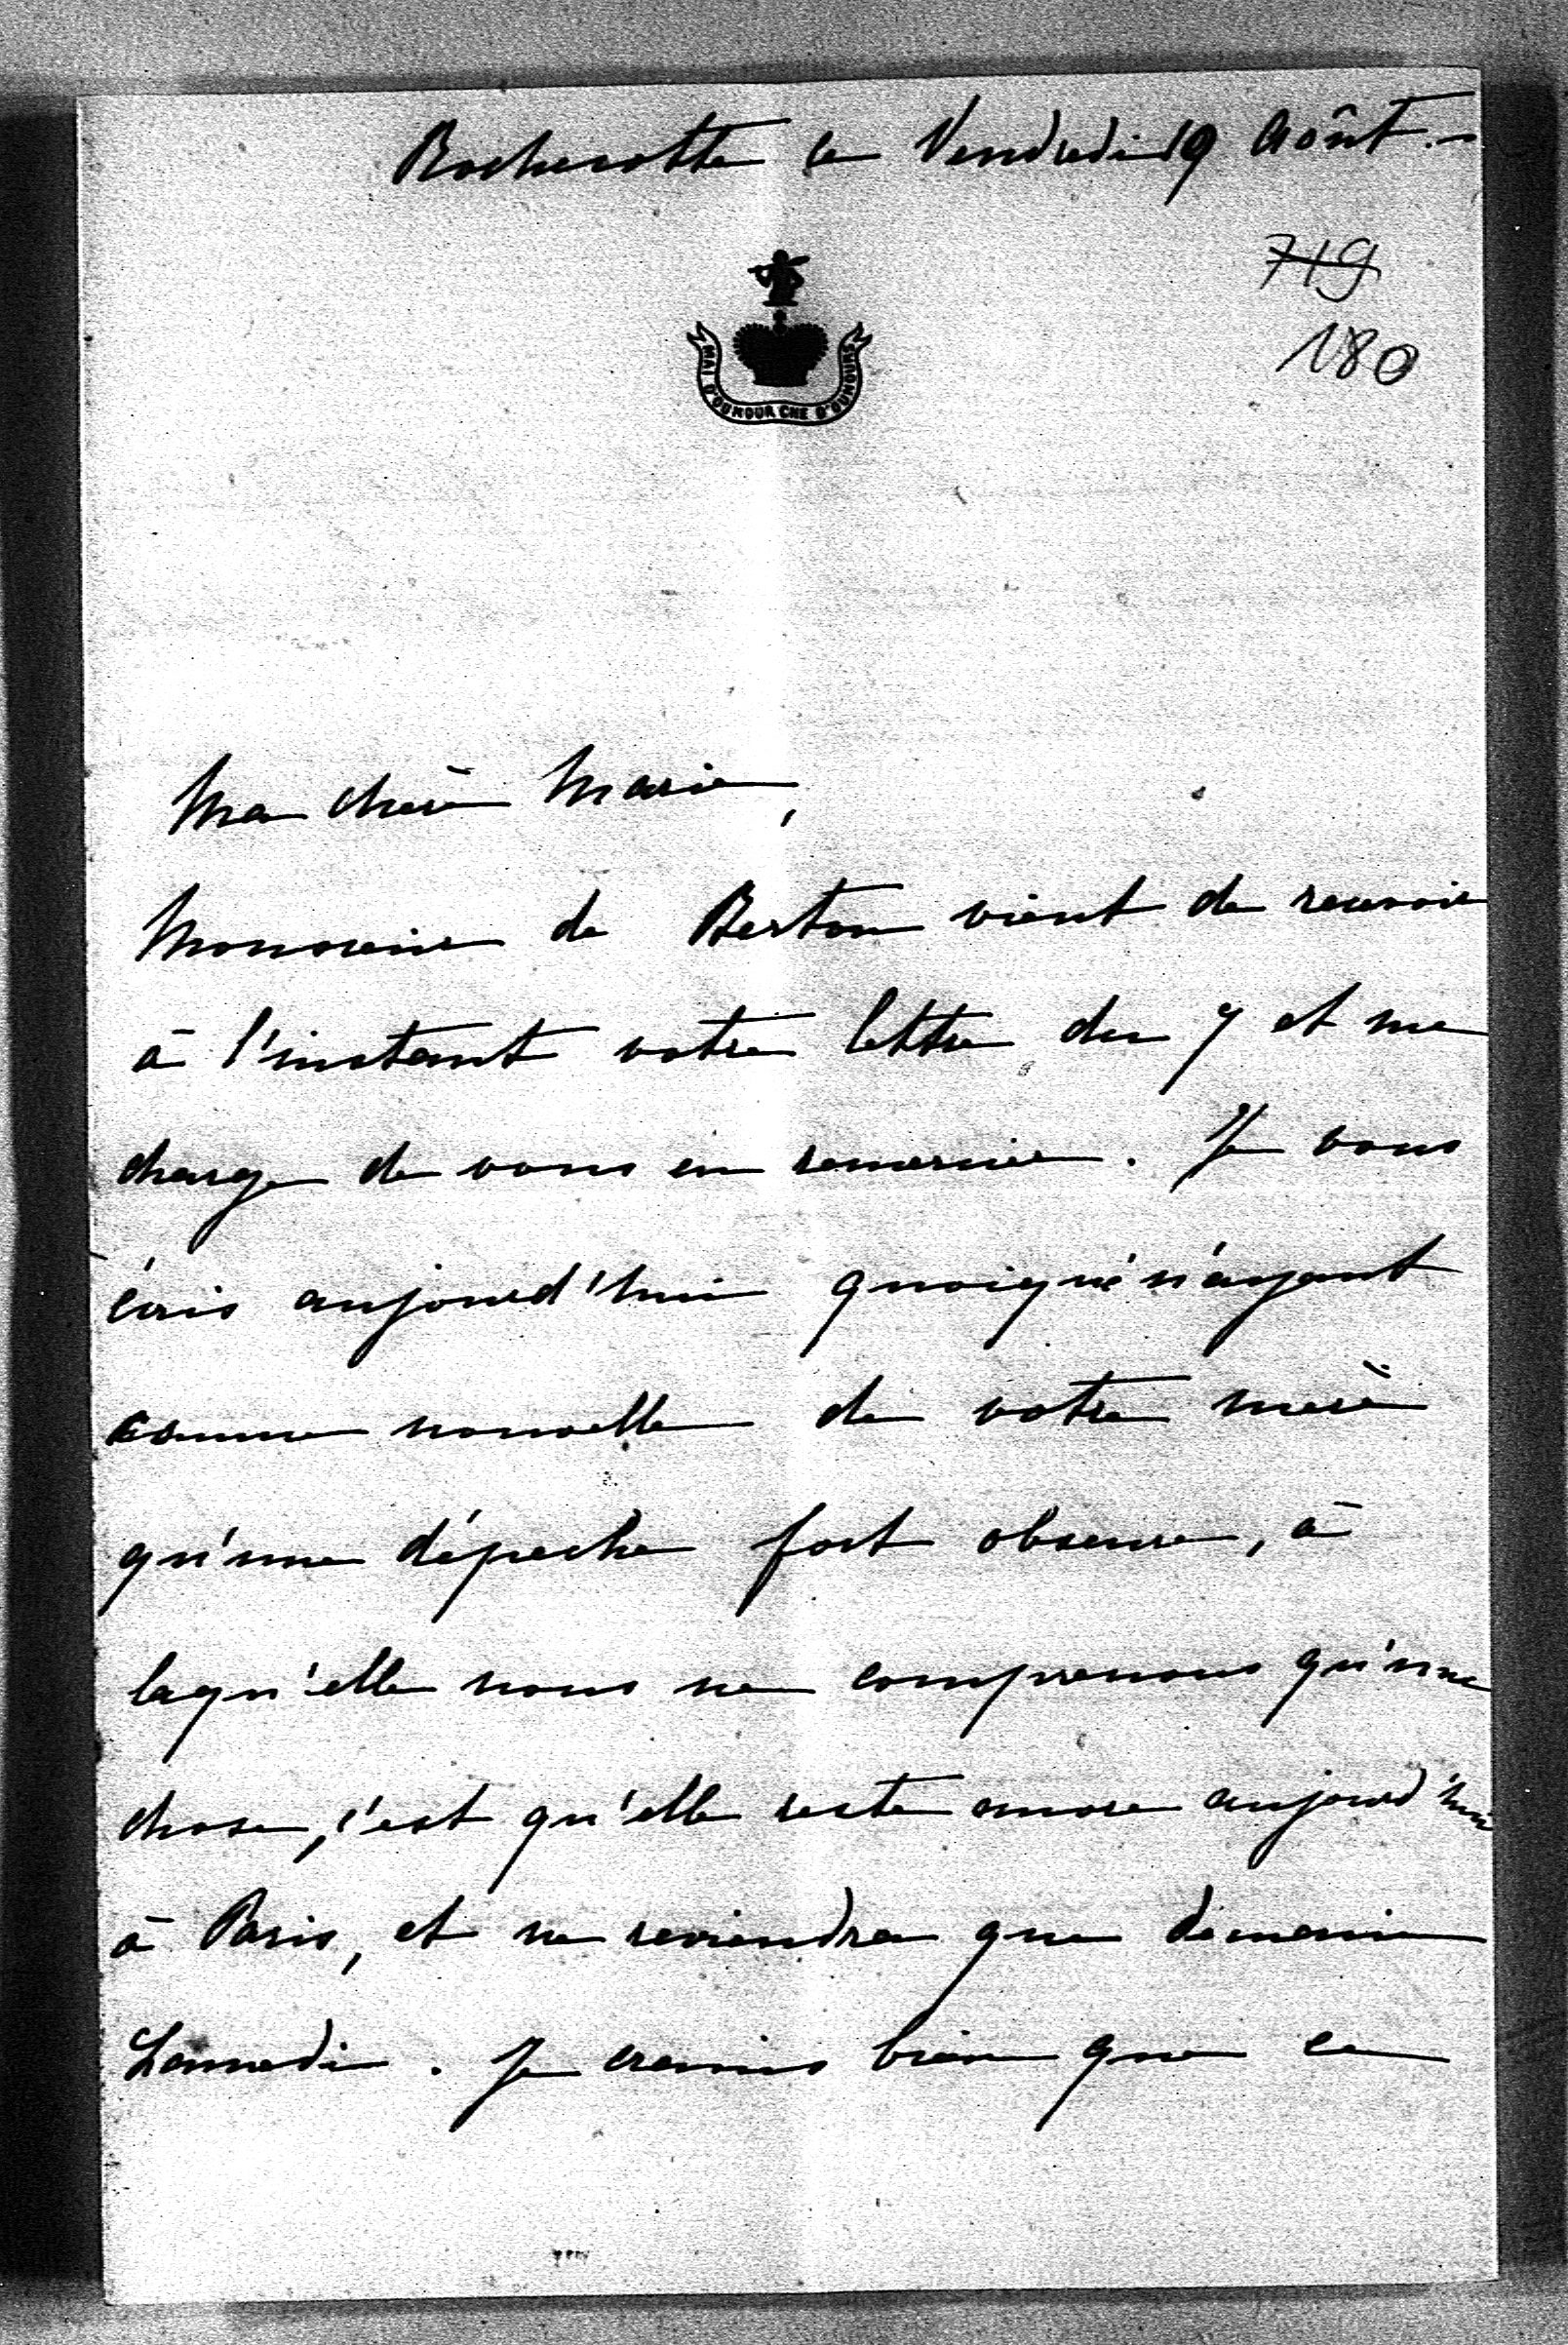 Rochecotte ce Vendredi 19 Août.-
719
180
MAI D'OUNOUR CHE D'OUNOURS
Ma cherè Marie,
Monsieur de Berton vient de recevoir
à l'instant votre lettre du 7 et me
charge de vous en remercier. Je vous
écris aujourd'hui quoiqué n'ayant
comme nouvelle de votre merè
qu'une dépeche fort obscure, à
laqu'elle nous ne comprenons qu'une
chose, c'est qu'elle reste encore aujourd'hui
à Paris, et ne reviendra que demain
Samedi. Je crains bien que ce